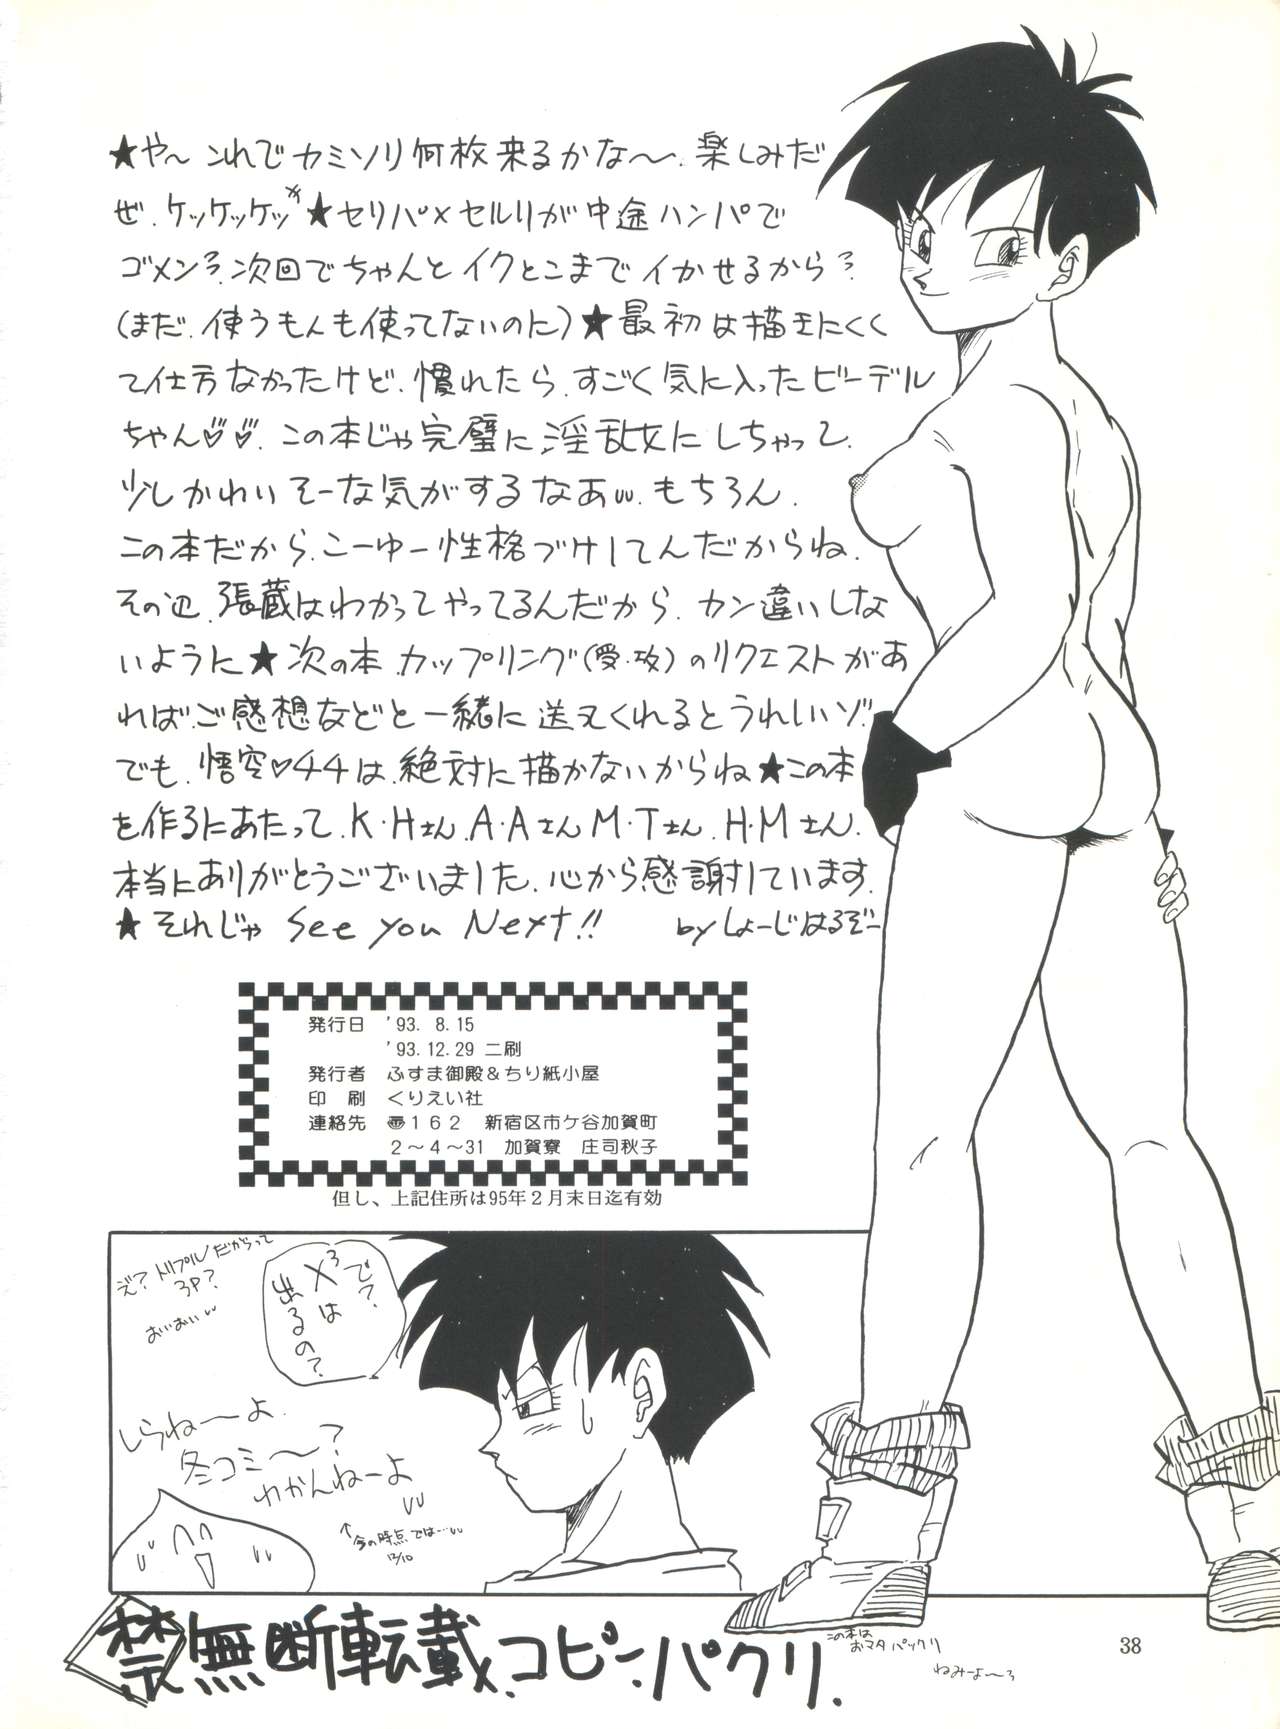 ★や〜これでカミソリ何枚来るかな〜.楽しみだ
ぜ.ケッケッケッ★セリパ×セルリが中途ハンパで
ゴメンろ.次回でちゃんとイクとこまでイかせるからろ
(まだ.使うもんも使ってないのに)★最初は描きにくく
て仕方なかったけど.慣れたら.すごく気に入ったビーデル
ちゃん♡♡.この本じゃ完璧に淫乱女にしちゃって.
少しかわいそーな気がするなあw.もちろん.
この本だから.こーゆー性格づけしてんだからね.
その辺.張蔵はわかってやってるんだから.カン違いしな
いように★次の本.カップリング(受・攻)のリクエストがあ
ればご感想などと一緒に送ってくれるとうれしいゾ.
でも.悟空♡チチは.絶対に描かないからね★この本
を作るにあたって.K・Hさん.A・Aさん M・Tさん.H・Mさん.
本当にありがとうございました.心から感謝しています.
★それじゃ See you Next!! byしょーじはるぞー
発行日 '93. 8.15
'93.12.29 二刷
発行者 ふすま御殿&ちり紙小屋
印 刷 くりえい社
連絡先 〠162 新宿区市ケ谷加賀町
2〜4〜31 加賀寮 庄司秋子
但し、上記住所は95年2月末日迄有効
で?
X³は
出るの?
え?トリプルだからって
3P?
おいおいw
しらねーよ.
冬コミ〜?
わかんねーよ
↑今の時点では…w
12/10
禁無断転載.コピー.パクリ.
この本は
おマタパックリ
ねみーよ〜ろ
38